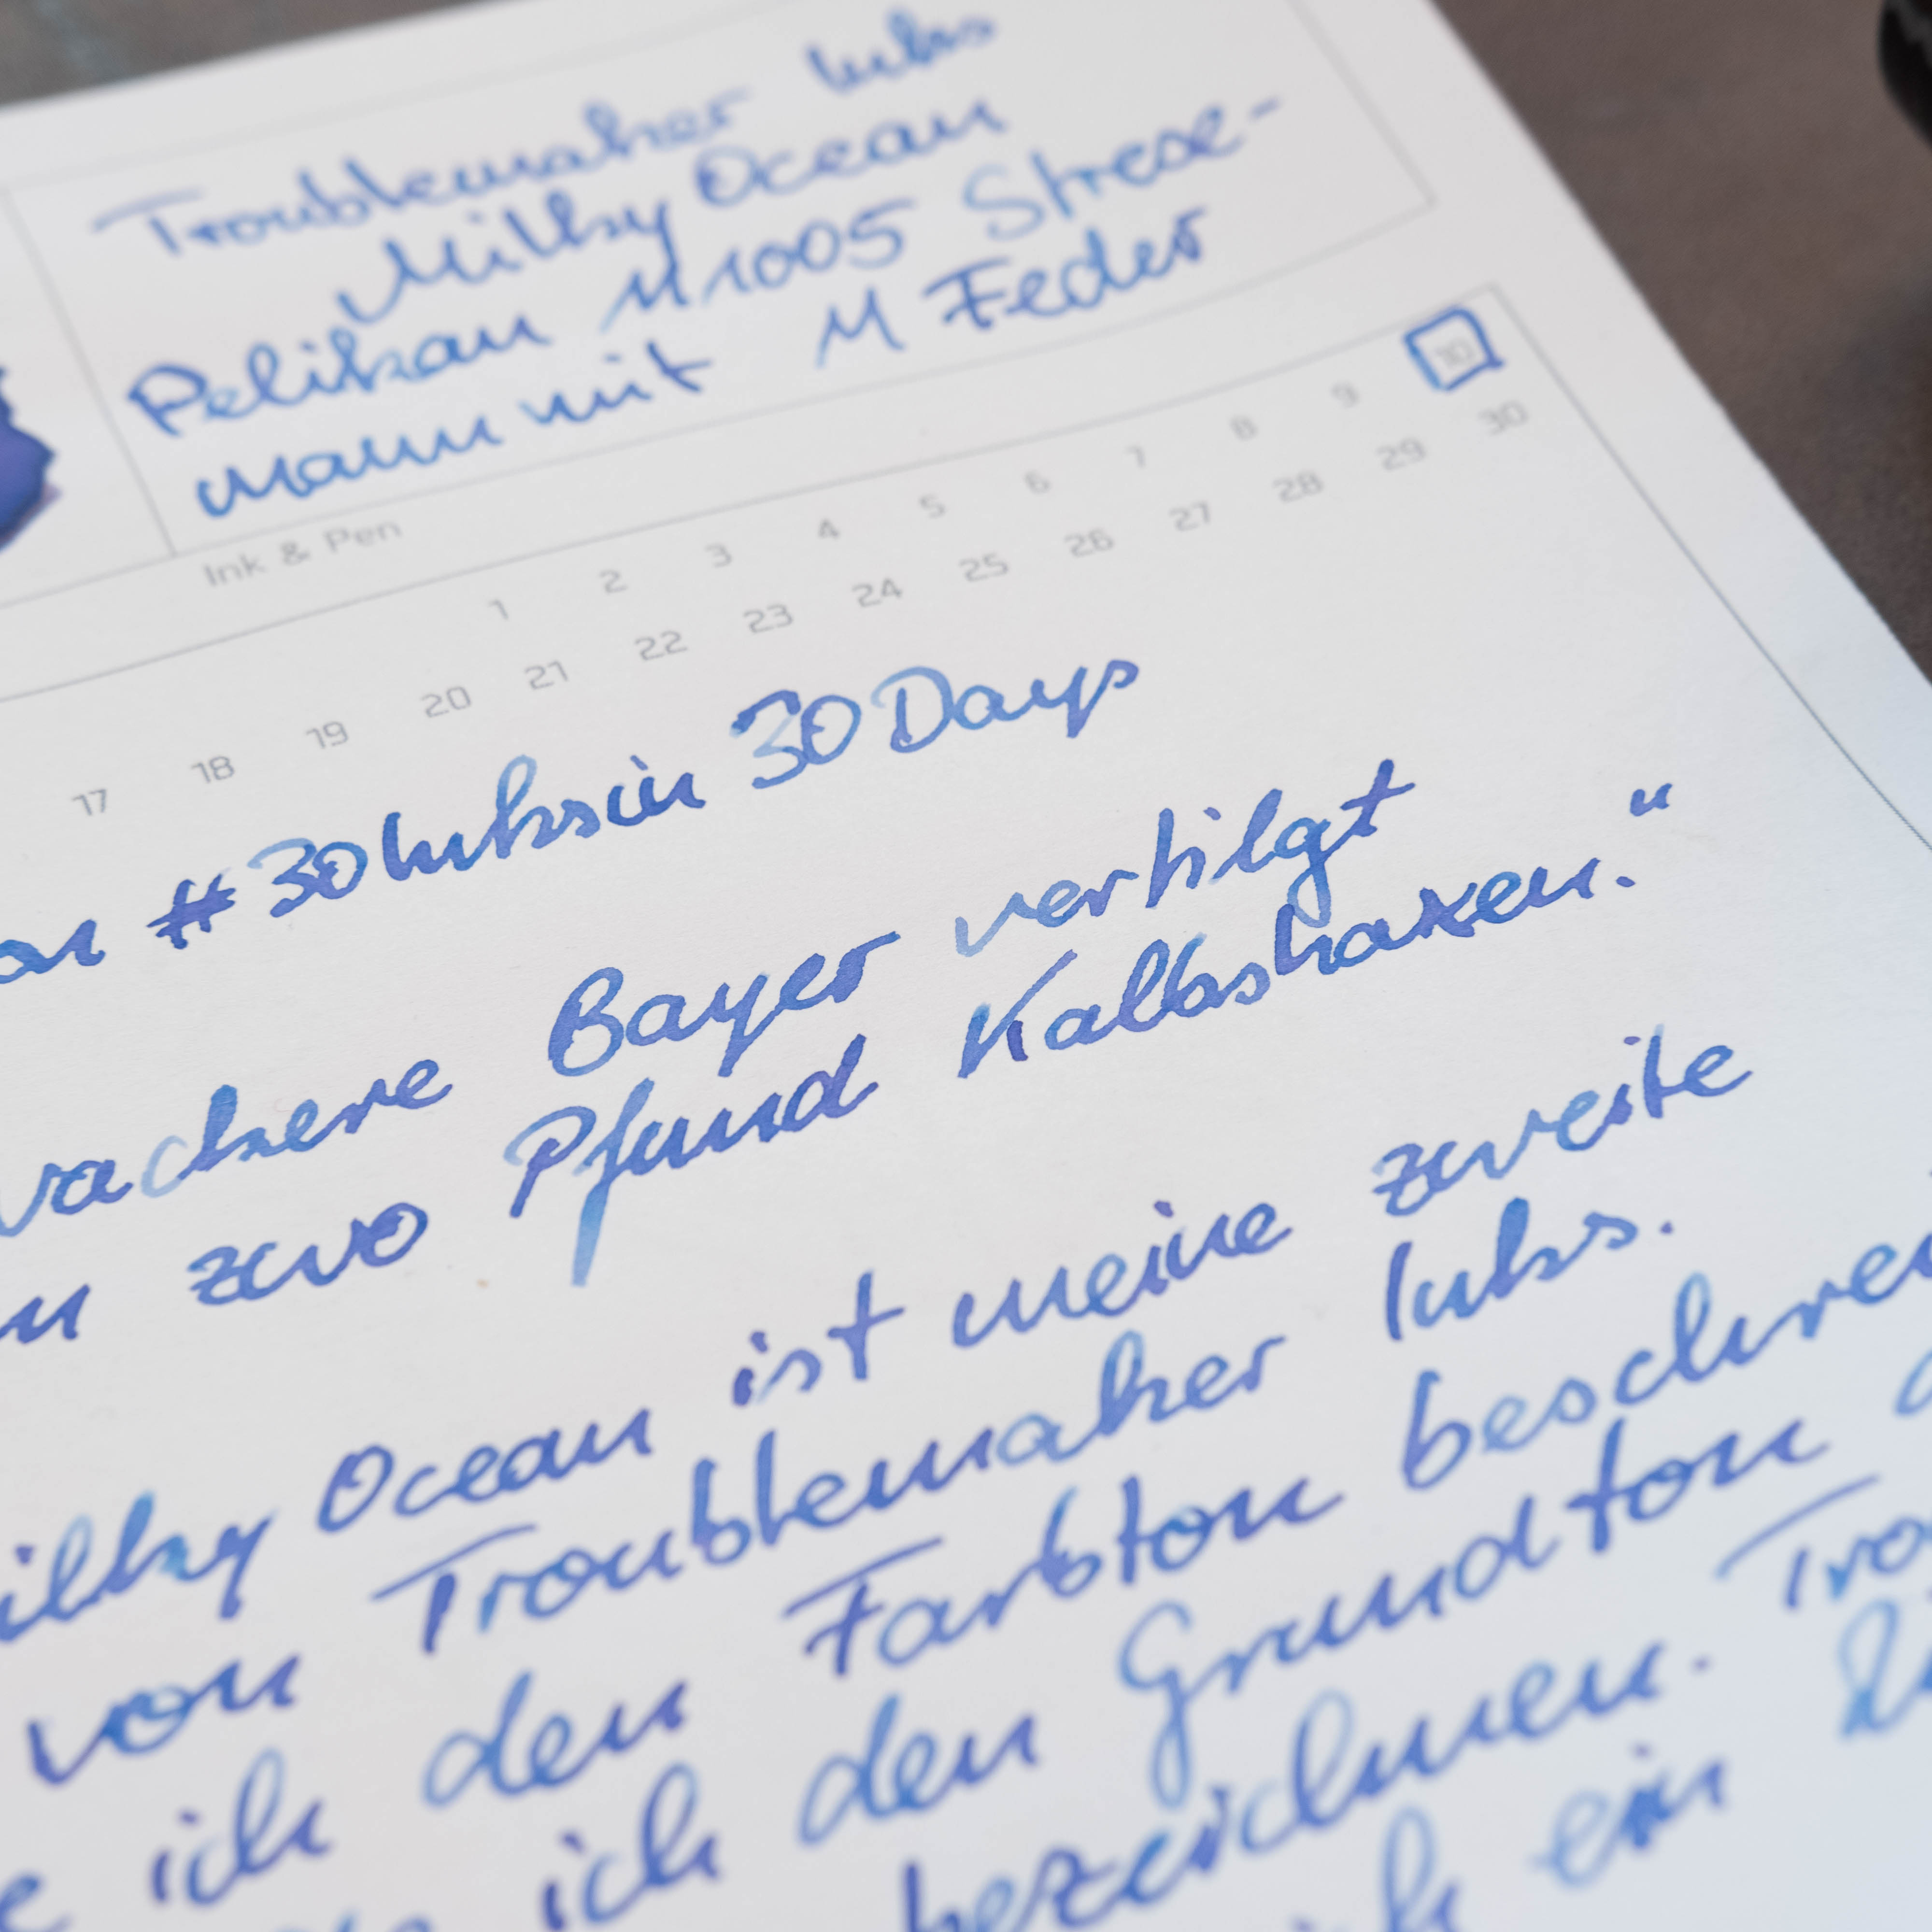 Troublemaker Inks
Milky Ocean
Pelikan M1005 Strese-
mann mit M Feder
Ink & Pen
1 2 3 4 5 6 7 8 9 10
17 18 19 20 21 22 23 24 25 26 27 28 29 30
#30Inksin30Days
wackere Bayer vertilgt
zwo Pfund Kalbshaxen."
Milky Ocean ist meine zweite
von Troublemaker Inks.
ich den Farbton beschrei
ich den Grundton
bezeichnen.
ein